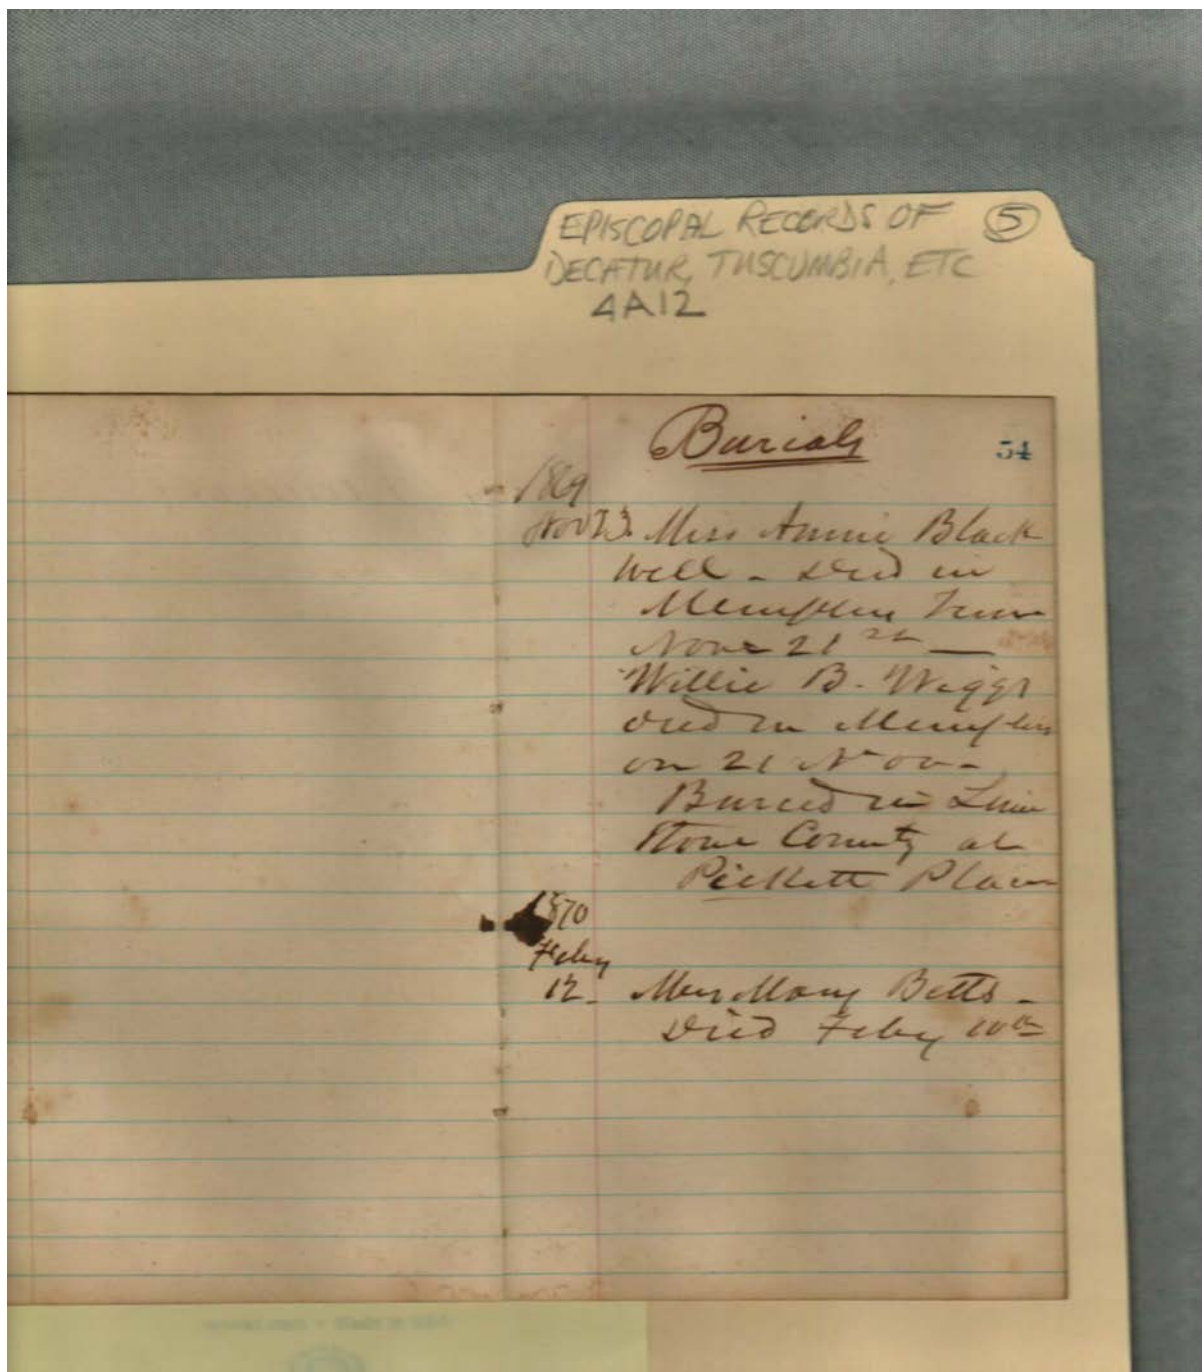 EPISCOPAL RECORDS OF 5
DECATUR, TUSCUMBIA, ETC
4A12
Burials 54
1869
Nov 23. Miss Annie Black
well - died in
Memphis Tenn
Nov 21st —
Willie B. Wiggs
died in Memphis
on 21 Nov -
Buried in Lime
stone County at
Pickett Place
1870
Feby
12. Mrs Mary Betts -
died Feby 10th